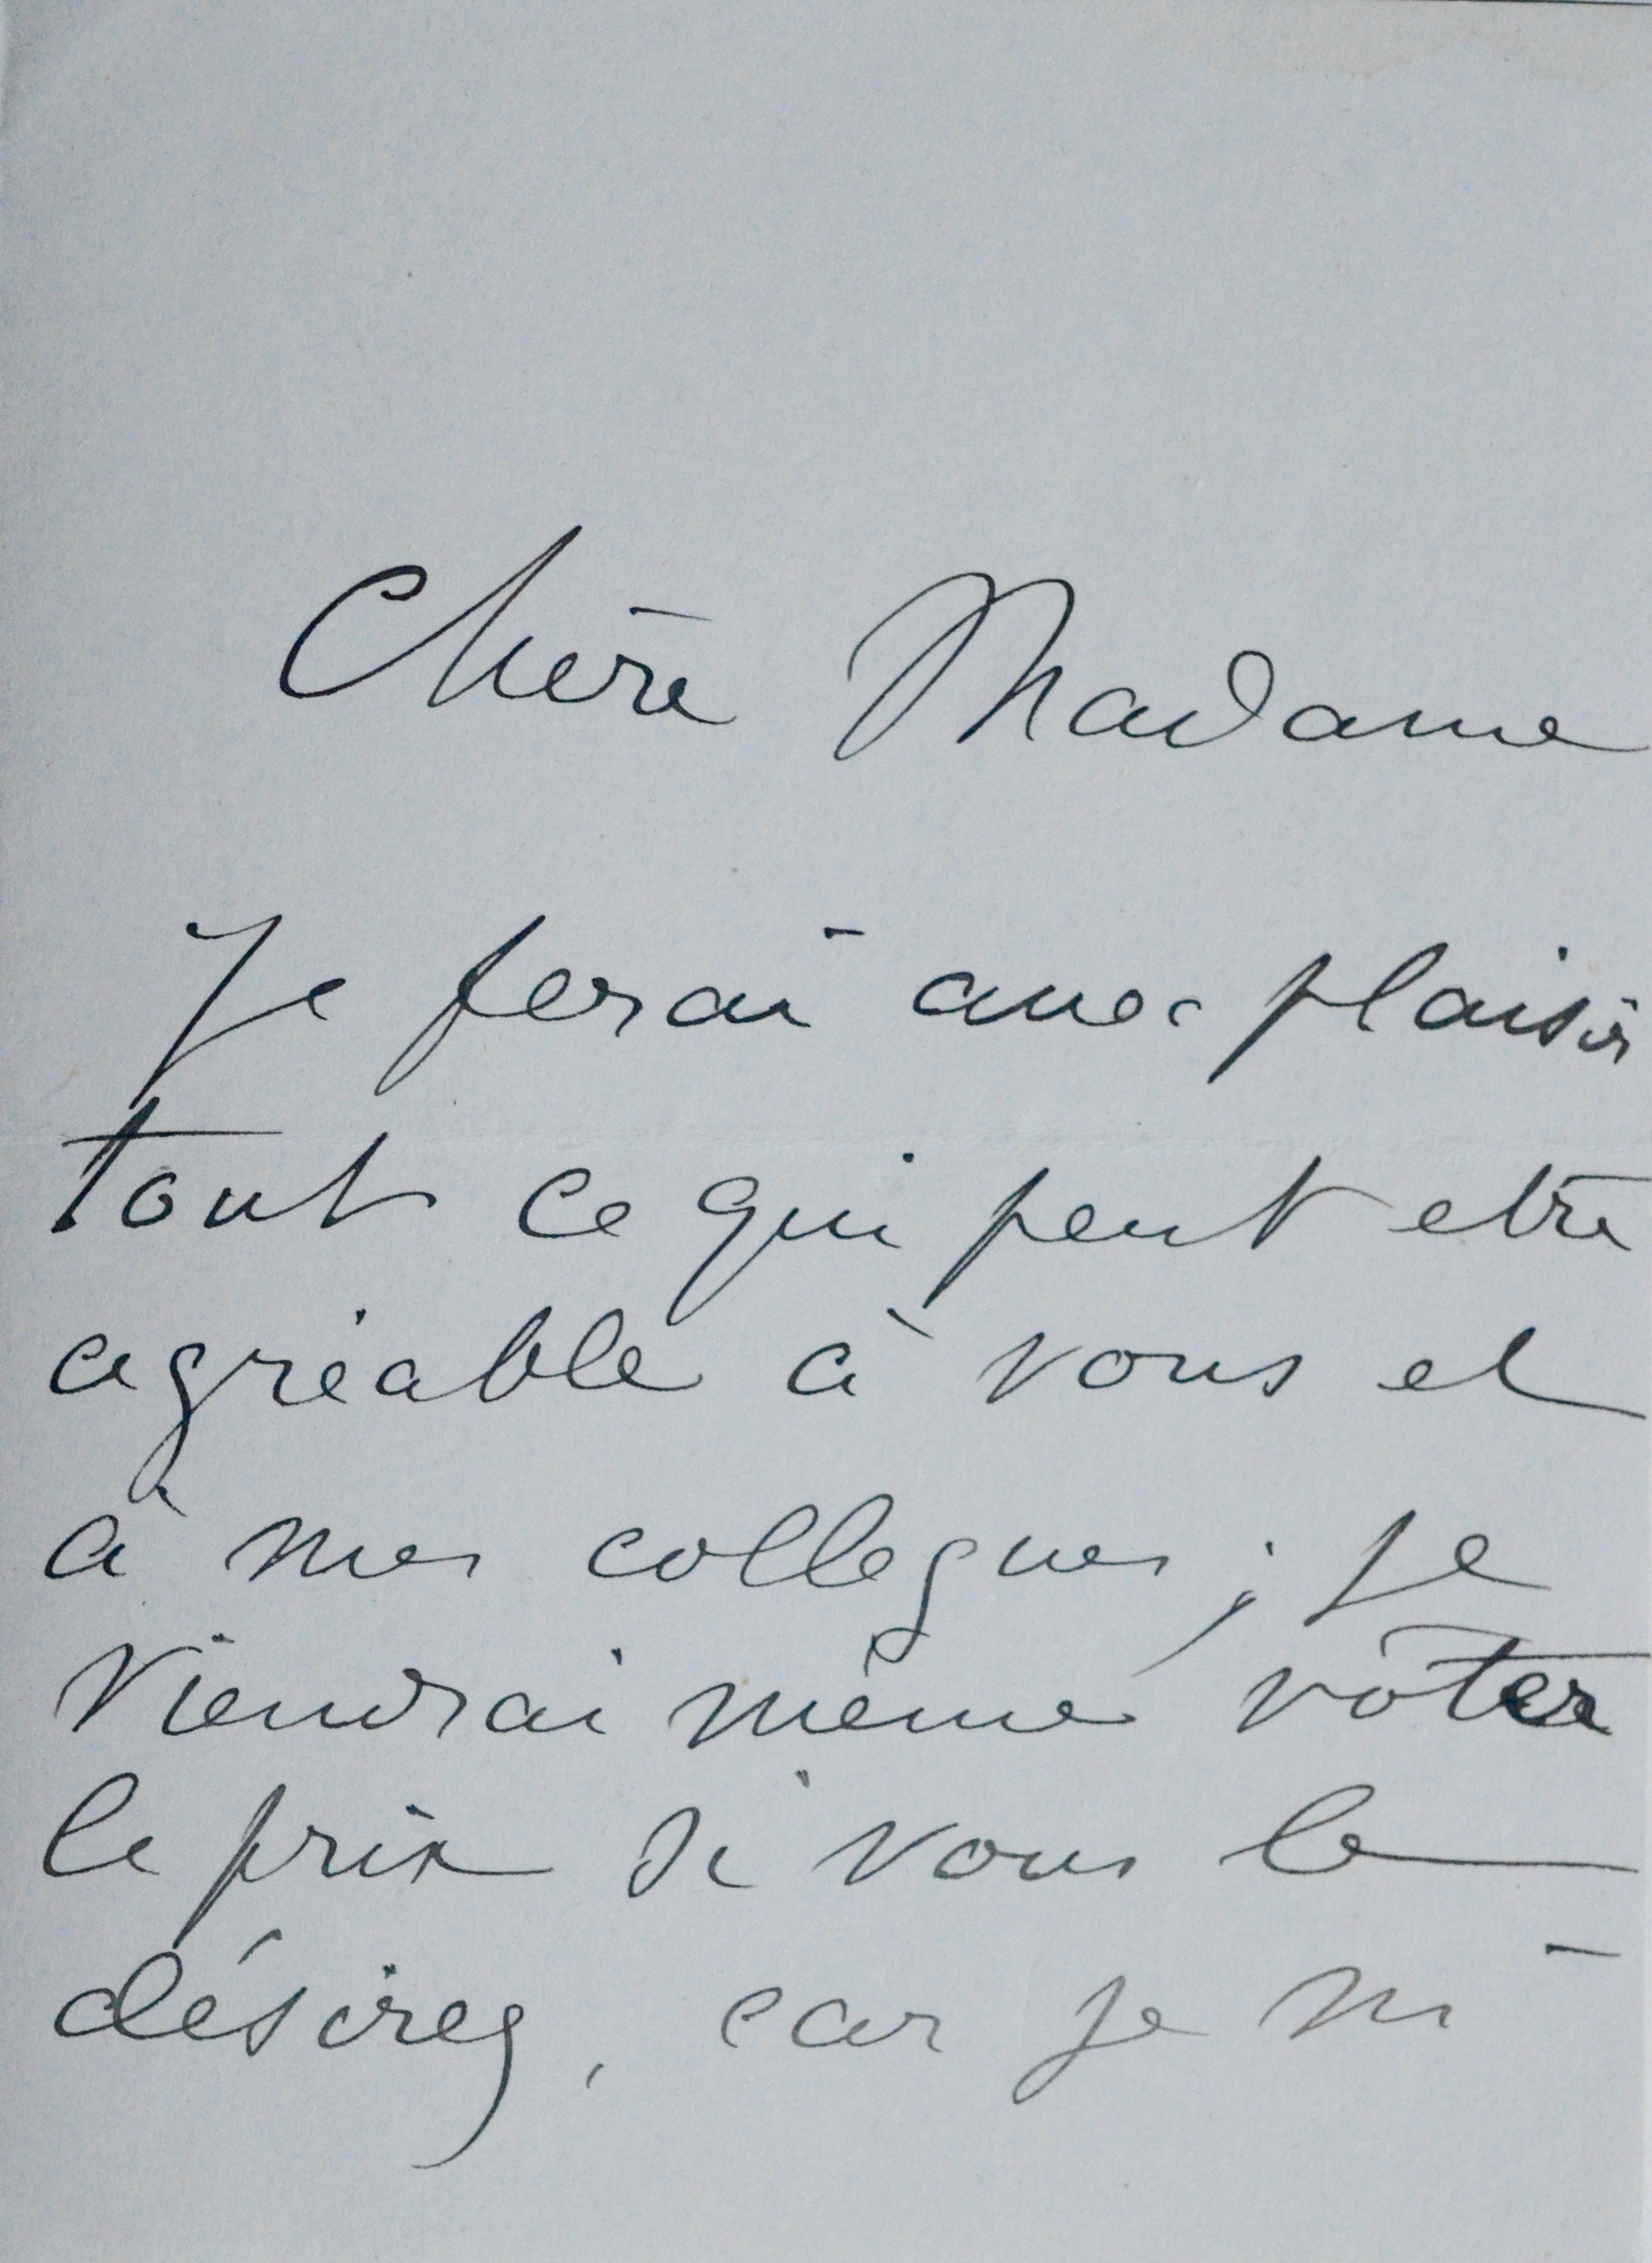 Chère Madame
Je ferai avec plaisir
tout ce qui peut etre
agréable à vous et
à mes collegues ; je
viendrai même voter
le prix si vous le
désirez, car je m'